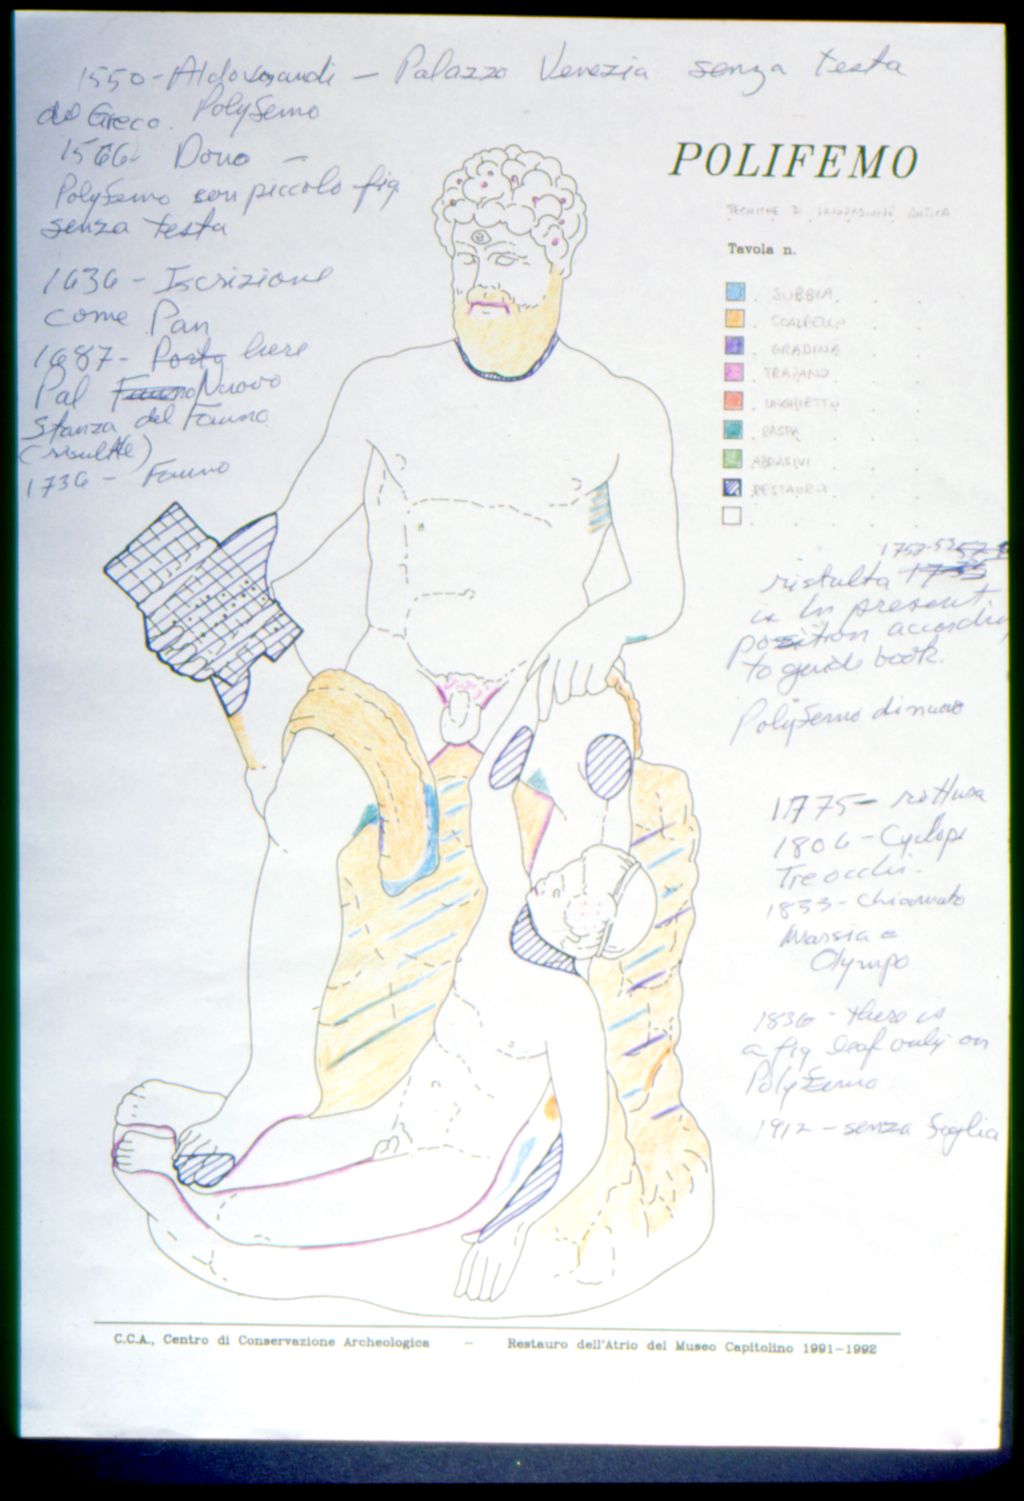 1550 - Aldovrandi - Palazzo Venezia senza testa
del Greco. Polyfemo
1566 - Dono -
Polyfemo con piccolo fig
senza testa
1636 - Iscrizione
come Pan
1687 - Posto here
Pal Fauno Nuovo
Stanza del Fauno
1736 - Fauno
POLIFEMO
TECNICHE DI LAVORAZIONE ANTICA
Tavola n.
SUBBIA
SCALPELLO
GRADINA
TRAPANO
UNGHIETTO
RASPA
ABRASIVI
RESTAURO
1752-53
ristulta 1735
is in present
position according
to guide book.
Polyfemo di nuovo
1775 -
1806 - Cyclops
Tre occhi.
1833 - Chiamato
Marsia e
Olympo
1836 - there is
a fig leaf only on
Polyfemo
1912 - senza foglia
C.C.A., Centro di Conservazione Archeologica - Restauro dell'Atrio del Museo Capitolino 1991-1992